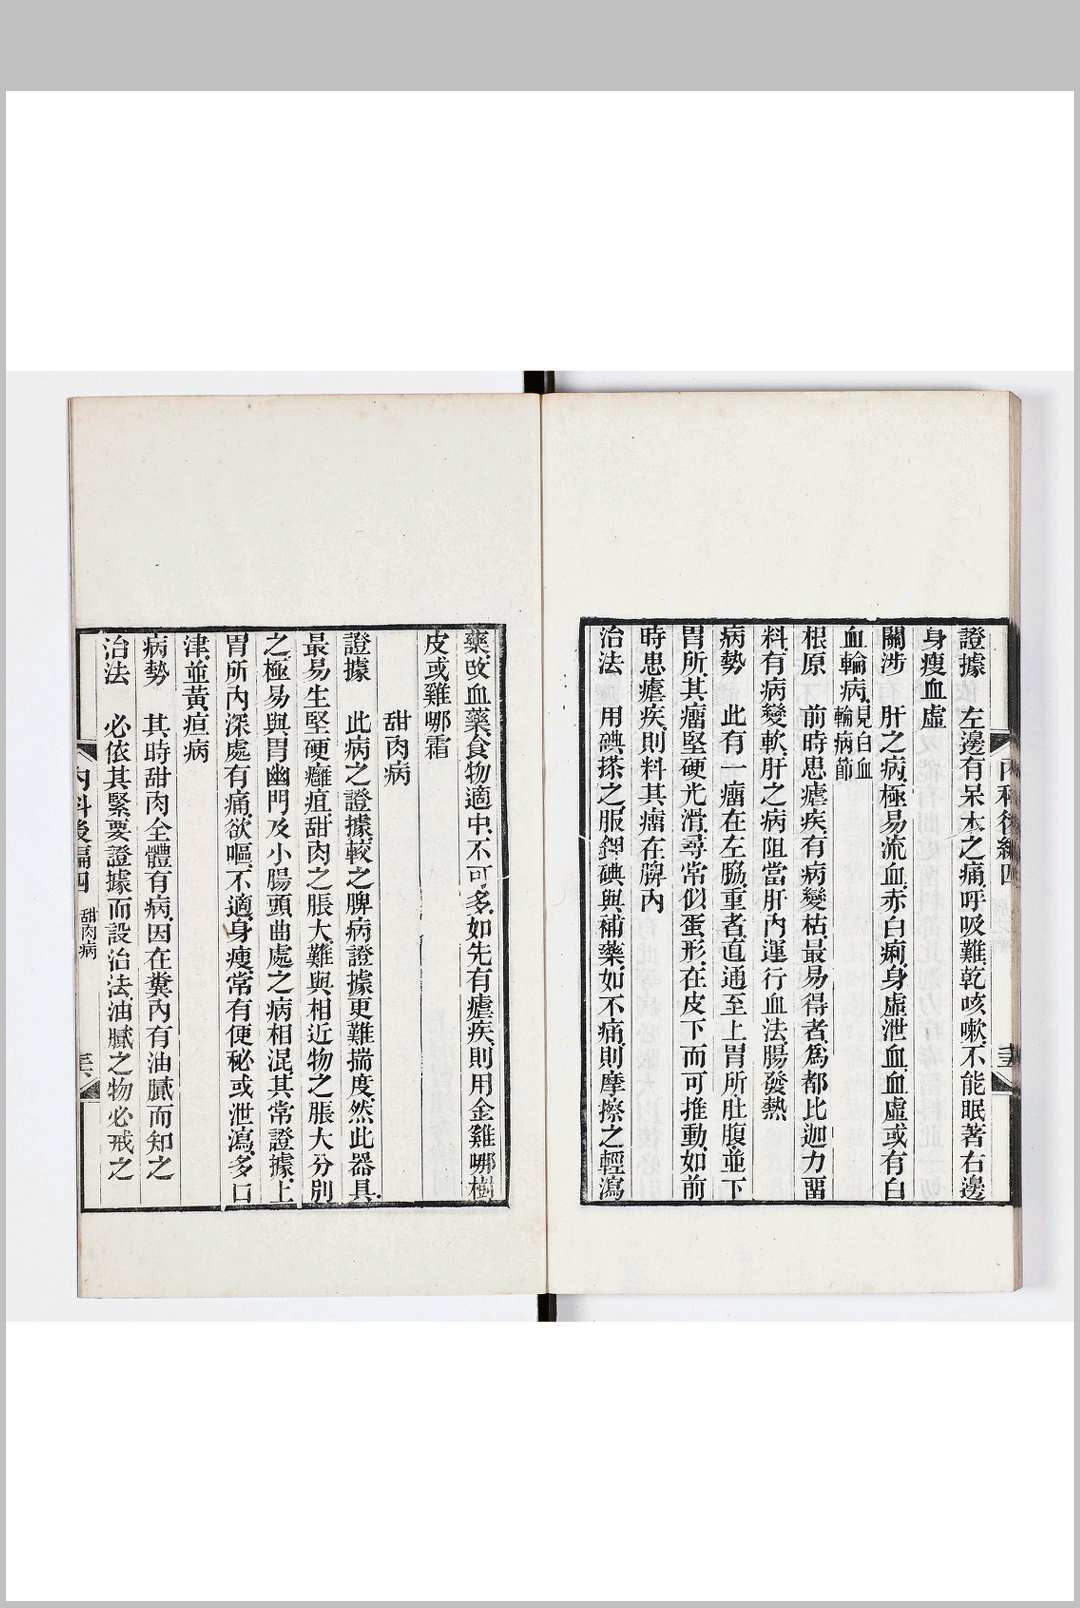 證據　左邊有呆木之痛、呼吸難、乾咳嗽、不能眠著右邊
身瘦血虛
關涉　肝之病、極易流血、赤白痢、身虛泄血、血虛或有白
血輪病、見白血輪病節
根原　前時患瘧疾、有病變枯、最易得者、為都比迦力畱
料、有病變軟、肝之病阻當肝內運行血法、腸發熱
病勢　此有一瘤在左脇、重者、直通至上胃所、肚腹、並下
胃所、其瘤堅硬光滑、尋常似蛋形、在皮下而可推動、如前
時患瘧疾、則料其瘤在脾內
治法　用碘搽之、服鉀碘與補藥、如不痛、則摩擦之、輕瀉
藥、改血藥、食物適中、不可多、如先有瘧疾、則用金雞哪樹
皮或雞哪霜
甜肉病
證據　此病之證據、較之脾病證據更難揣度、然此器具、
最易生堅硬癰疽、甜肉之脹大、難與相近物之脹大分別
之、極易與胃幽門及小腸頭曲處之病相混、其常證據、上
胃所內深處有痛、欲嘔、不適、身瘦、常有便秘或泄瀉、多口
津、並黃疸病
病勢　其時甜肉全體有病、因在糞內有油膩而知之
治法　必依其緊要證據而設治法、油膩之物必戒之
內科後編四　甜肉病